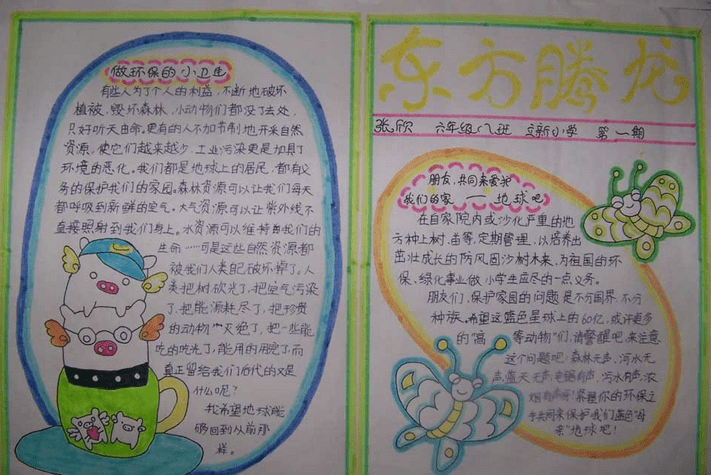 做环保的小卫生
有些人为了个人的利益，不断地破坏
植被，毁坏森林，小动物们都没了去处，
只好听天由命。更有的人不加节制地开采自然
资源，使它们越来越少，工业污染更是加具了
环境的恶化。我们都是地球上的居民，都有义
务的保护我们的家园。森林资源可以让我们每天
都呼吸到新鲜的空气。大气资源可以让紫外线不
直接照射到我们身上。水资源可以维持每我们的
生命……可是这些自然资源都
被我们人类自己破坏掉了。人
类把树砍光了，把空气污染
了，把能源耗尽了，把珍贵
的动物灭绝了，把一些能
吃的吃光了，能用的用完了，而
真正留给我们后代的又是
什么呢？
我希望地球能
够回到从前那
样。
东方腾龙
张欣 六年级八班 立新小学 第一期
朋友，共同来爱护
我们的家——地球吧
在自家院内或沙化严重的地
方种上树、苗等，定期管理，以培养出
茁壮成长的防风固沙树木来，为祖国的环
保、绿化事业做小学生应尽的一点义务。
朋友们，保护家园的问题是不分国界，不分
种族。希望这蓝色星球上的60亿，或许更多
的“高等动物”们，请警醒吧，来注意
这个问题吧：森林无声，河水无
声，蓝天无声；电锯有声，污水有声，浓
烟有声啊！紧握你的环保之
手共同来保护我们蓝色“母
亲”地球吧！